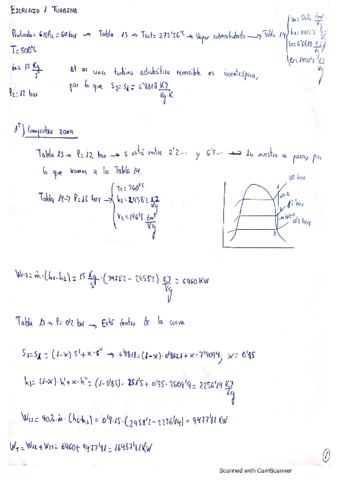 EJERCICIO 1 TURBINA
Entrada: 6 MPa = 60 bar → Tabla 13 → Tsat = 275'56°C → Vapor sobrecalentado → Tabla 14
T = 500°C
ṁ = 15 Kg/s
P2 = 12 bar
Al ser una turbina adiabática reversible es isentrópica,
por lo que S2 = S1 = 6'8818 KJ/Kg·K
1º) Comprobar zona
Tabla 13 → P = 12 bar → s está entre 2'2... y 6'5... → La nuestra se pasa, por
lo que vamos a la Tabla 14.
Tabla 14 → P = 12 bar →
h2 = 2958'2 KJ/Kg
60 bar
12 bar
0'2 bar
W1-2 = ṁ·(h1-h2) = 15 Kg/s · (3422'2 - 2958'2) KJ/Kg = 6960 KW
Tabla 13 → P = 0'2 bar → Está dentro de la curva
S3 = S1 = (1-x)·s' + x·s'' → 6'8818 = (1-x)·0'8321 + x·7'9094; x = 0'85
h3 = (1-x)·h' + x·h'' = (1-0'85)· 251'5 + 0'85·2609'9 = 2256'14 KJ/Kg
W23 = 90%·ṁ·(h2-h3) = 0'9·15·(2958'2 - 2256'14) = 9477'81 KW
WT = W12 + W23 = 6960 + 9477'81 = 16437'81 KW
1
Scanned with CamScanner